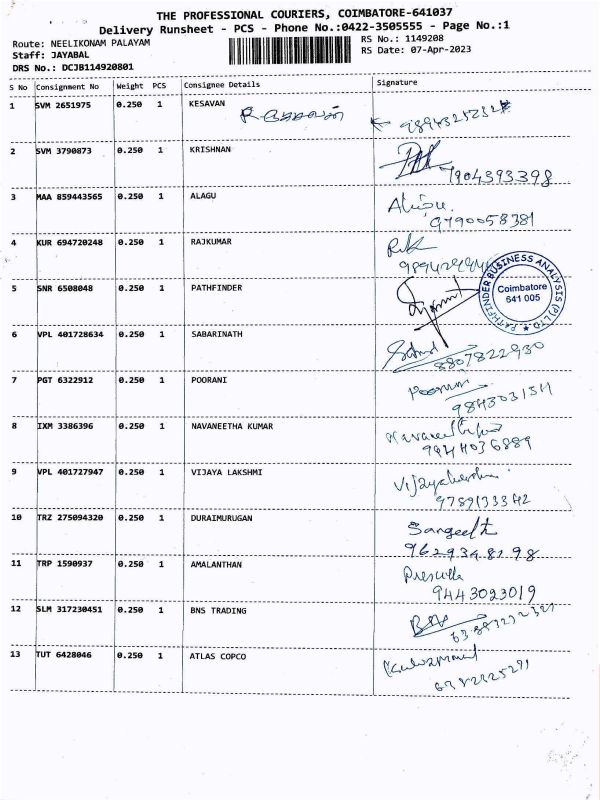 THE PROFESSIONAL COURIERS, COIMBATORE-641037
Delivery Runsheet - PCS - Phone No.:0422-3505555 - Page No.:1
Route: NEELIKONAM PALAYAM
RS No.: 1149208
Staff: JAYABAL
RS Date: 07-Apr-2023
DRS No.: DCJB114920801
S No Consignment No Weight PCS Consignee Details Signature
1 SVM 2651975 0.250 1 KESAVAN
2 SVM 3790873 0.250 1 KRISHNAN
7904393398
3 MAA 859443565 0.250 1 ALAGU
9790058381
4 KUR 694720248 0.250 1 RAJKUMAR
5 SNR 6508048 0.250 1 PATHFINDER
PATHFINDER BUSINESS ANALYSIS (P) LTD
Coimbatore
641 005
6 VPL 401728634 0.250 1 SABARINATH
8807822930
7 PGT 6322912 0.250 1 POORANI
Poorani
9843031511
8 IXM 3386396 0.250 1 NAVANEETHA KUMAR
9944036889
9 VPL 401727947 0.250 1 VIJAYA LAKSHMI
Vijayalakshmi
9789133342
10 TRZ 275094320 0.250 1 DURAIMURUGAN
Sangeeth
9629348198
11 TRP 1590937 0.250 1 AMALANTHAN
Prescilla
9443023019
12 SLM 317230451 0.250 1 BNS TRADING
13 TUT 6428046 0.250 1 ATLAS COPCO